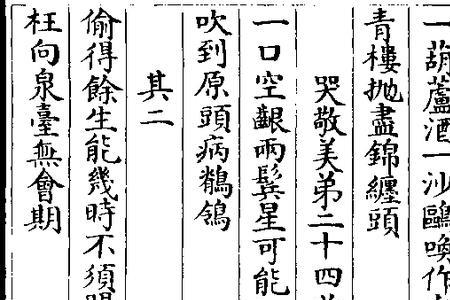 一葫蘆酒一沙鷗喚作
青樓拋盡錦纏頭
哭敬美弟二十四
一口空齦兩鬢星可能
吹到原頭病鶺鴒
其二
偷得餘生能幾時不須
枉向泉臺無會期